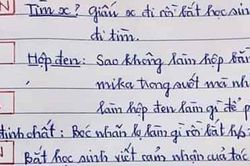 Tìm x? Giấu x đi rồi bắt học sin
đi tìm.
Hộp đen: Sao không làm hộp bằ
mika trong suốt mà nh
làm hộp đen làm gì để p
tính chất: Bóc nhãn lọ làm gì rồi bắt hs
Bắt học sinh viết cảm nhận của tá